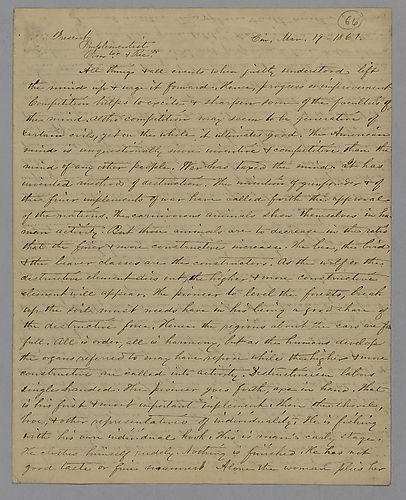 66
Present,
Cin, Mar. 19-1861.
Implementist,
All things & all events when justly understood lift
the mind up & urge it forward. Hence, progress or improvement.
Competition helps to excite & sharpen some of the faculties of
the mind. Altho competition may seem to be generative of
certain evils, yet on the whole it ultimates good. The American
mind is unquestionably more inventive & competitors than the
mind of any other people. War has taxed the mind. It has
invented methods of destruction. The invention of gunpowder & of
the finer implements of war have called forth the approval
of the nations. The carnivorous animals show themselves in hu-
man activity. But those animals are to decrease in the ratio
that the finer & more constructive increase. The bee, the bird,
& the beaver classes are the constructors. As the wolf or the
destructive element dies out, the higher & more constructive
element will appear. The pioneer to level the forests, break
up the soils must needs have in his being a good share of
the destructive force. Hence the regions about the ears are fu
full. All is order, all is harmony, but as the humans develope
the organs referred to may have repose while the higher & more
constructive are called into activity. Destructiveism labors
single handed. The pioneer goes forth, axe in hand. That
is his first & most important implement. Then the shovel,
hoe, & other representations of individuality. He is fishing
with his own individual hook. This is man's early stage.
He clothes himself rudely. Nothing is finished. He has not
good taste or fine manners. Alone the woman plies her